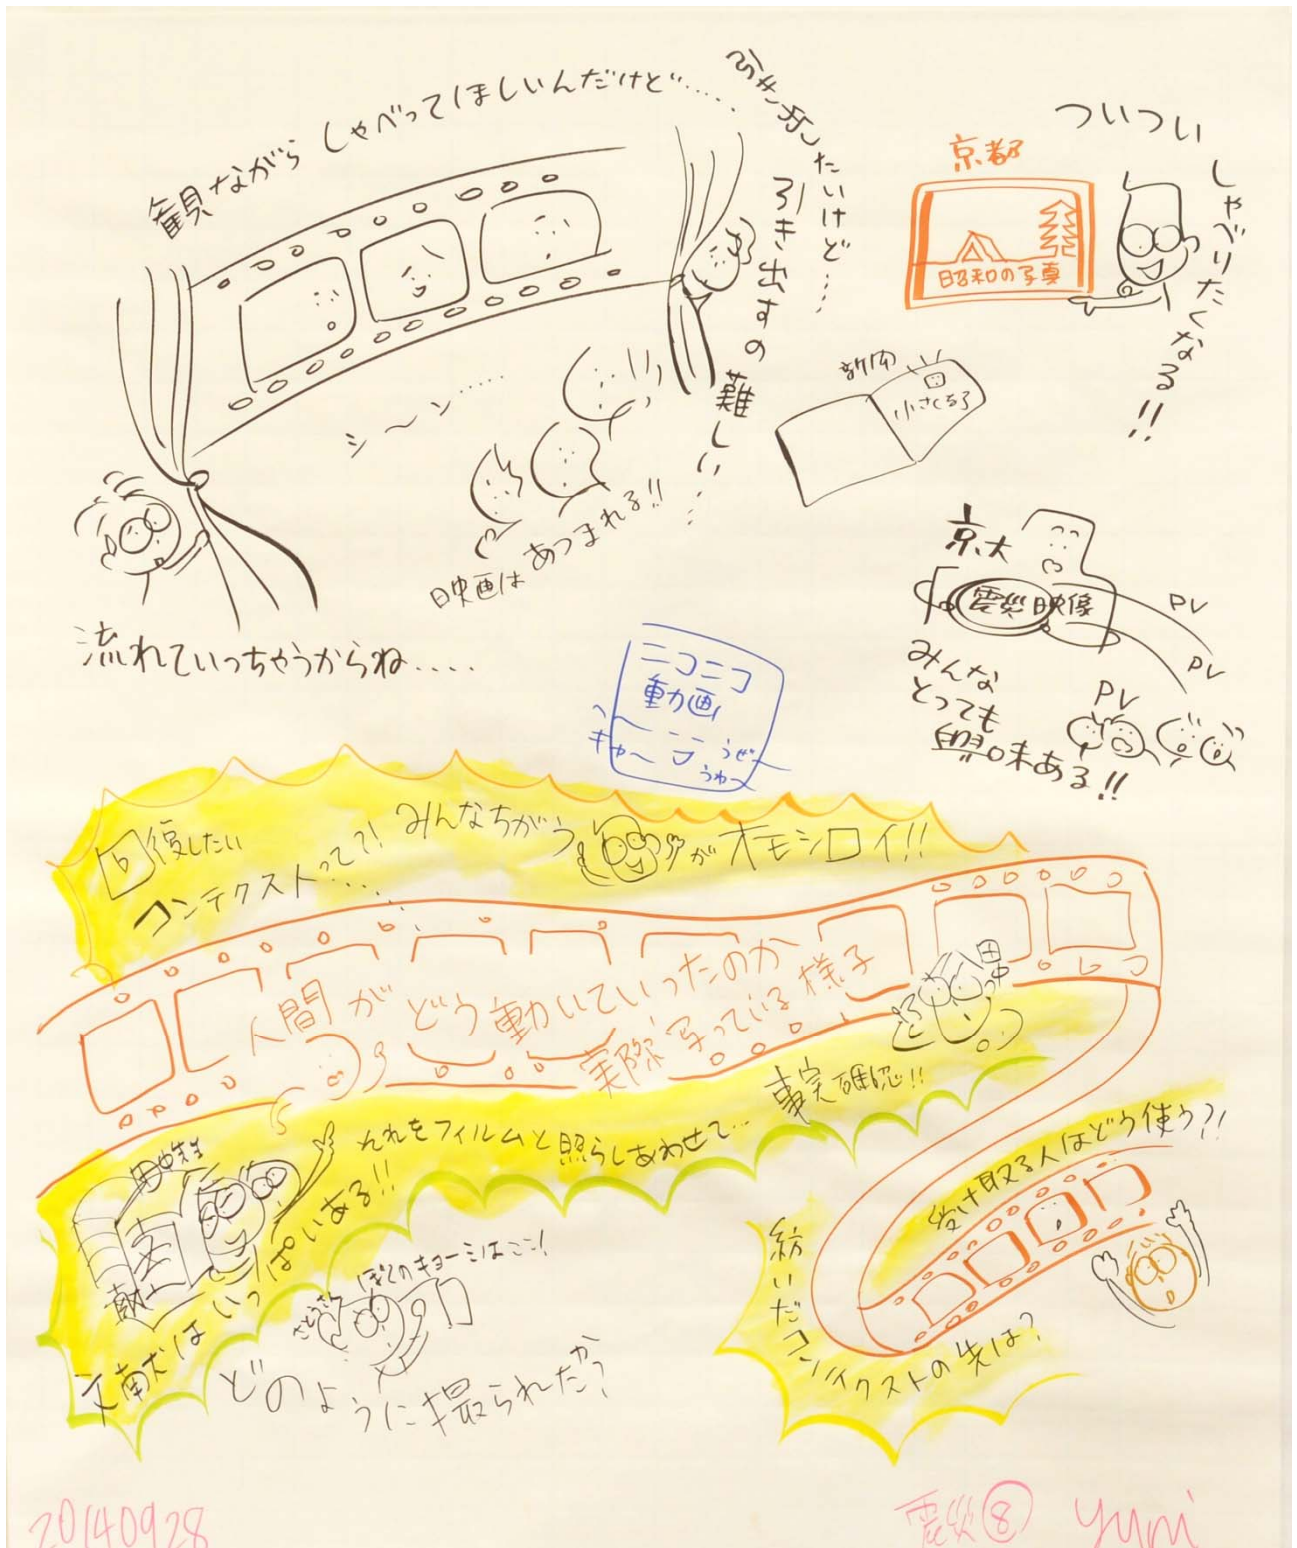 観ながらしゃべってほしいんだけど……
引き出したいけど……
引き出すの難しい……
シ〜ン……
映画はあつまれる!!
流れていっちゃうからね....
京都
昭和の写真
ついつい
しゃべりたくなる!!
新聞
小さくなる
京大
震災映像
PV
PV
PV
みんな
とっても
興味ある!!
ニコニコ
動画
うぜー
うわ〜
回復したい
コンテクストって?!...
みんなちがう
がオモシロイ!!
人間がどう動いていったのか
実際、写っている様子
田中
事実確認!!
それをフィルムと照らしあわせて...
田中先生
文献
文献はいっぱいある!!
ぼくのキョーミはここ!
さとうさん
どのように撮られたかっ?
受け取る人はどう使う?!
紡いだコンテクストの先は?
20140928
震災⑧
yuni